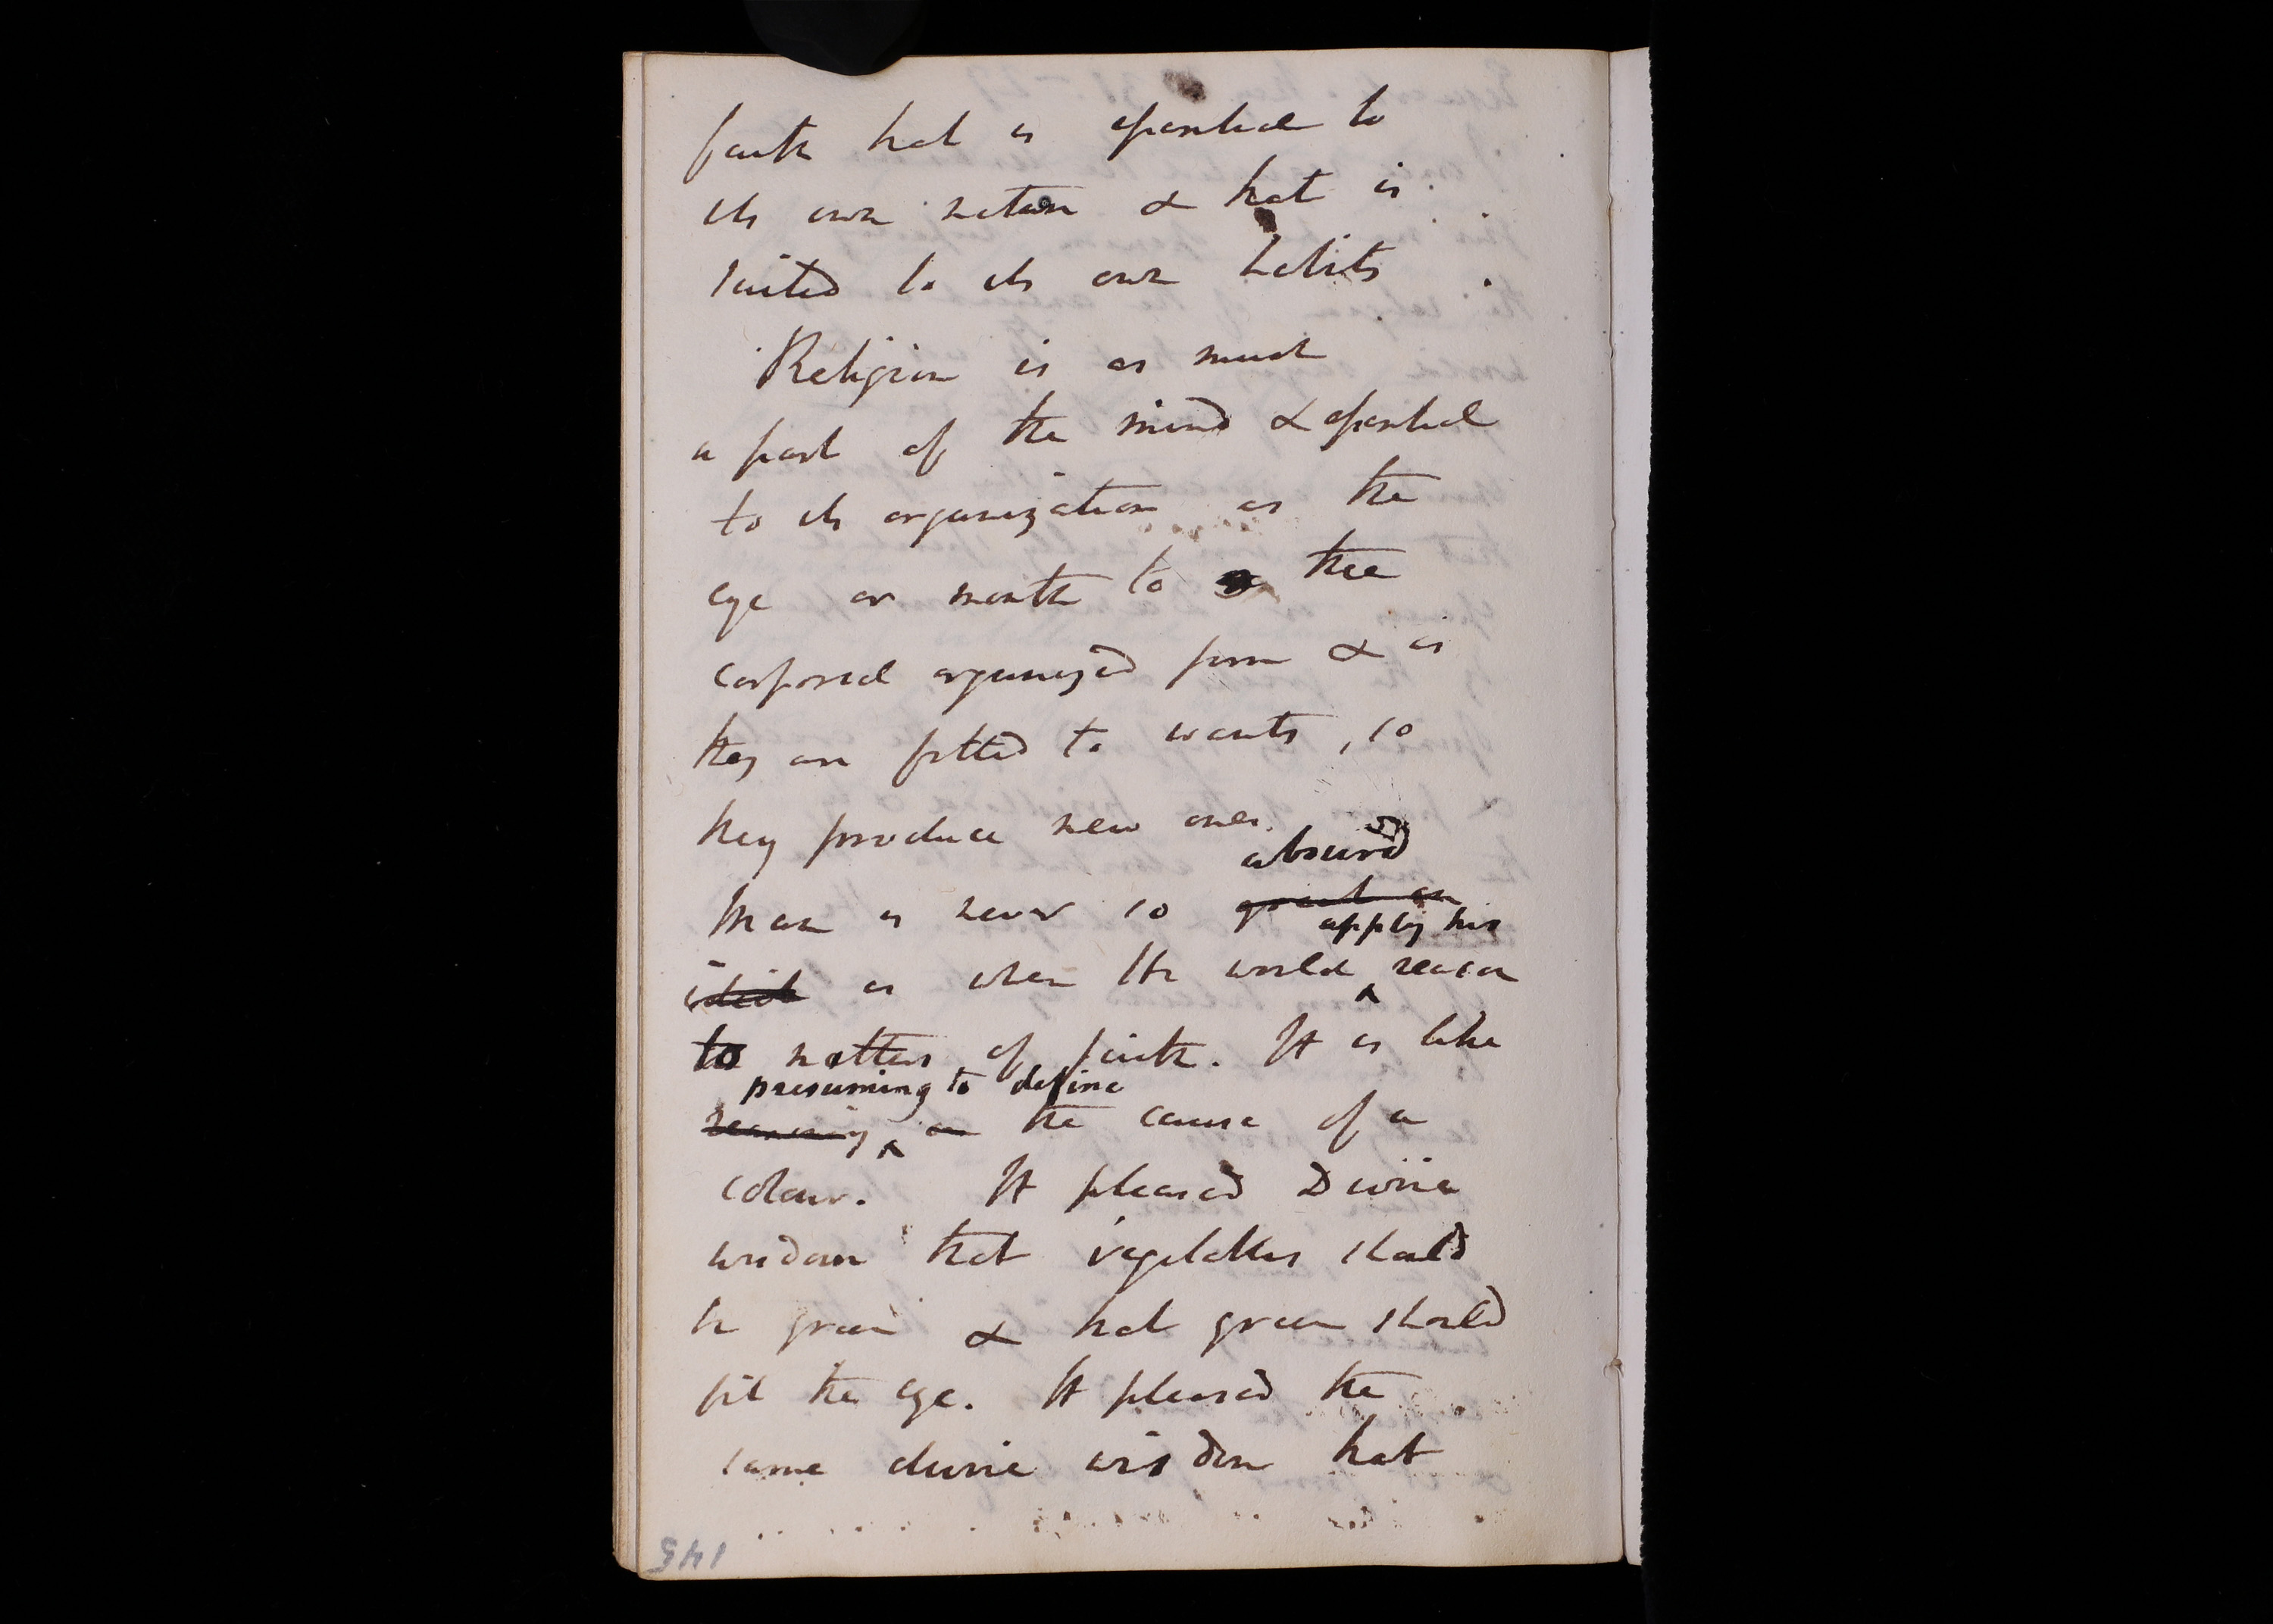 faith that is essential to
its own nature & that is
suited to its own habits
Religion is as much
a part of the mind & essential
to its organization as the
eye or mouth to the
corporeal organized form & as
they are fitted to wants, so
they produce new ones.
absurd
Man is never so great an
apply his
idiot as when He would reason
to matters of faith. It is like
presuming to define
reasoning on the cause of a
colour. It pleased Divine
wisdom that vegetables should
be green & that green should
fit the eye. It pleased the
same divine wisdom that
145